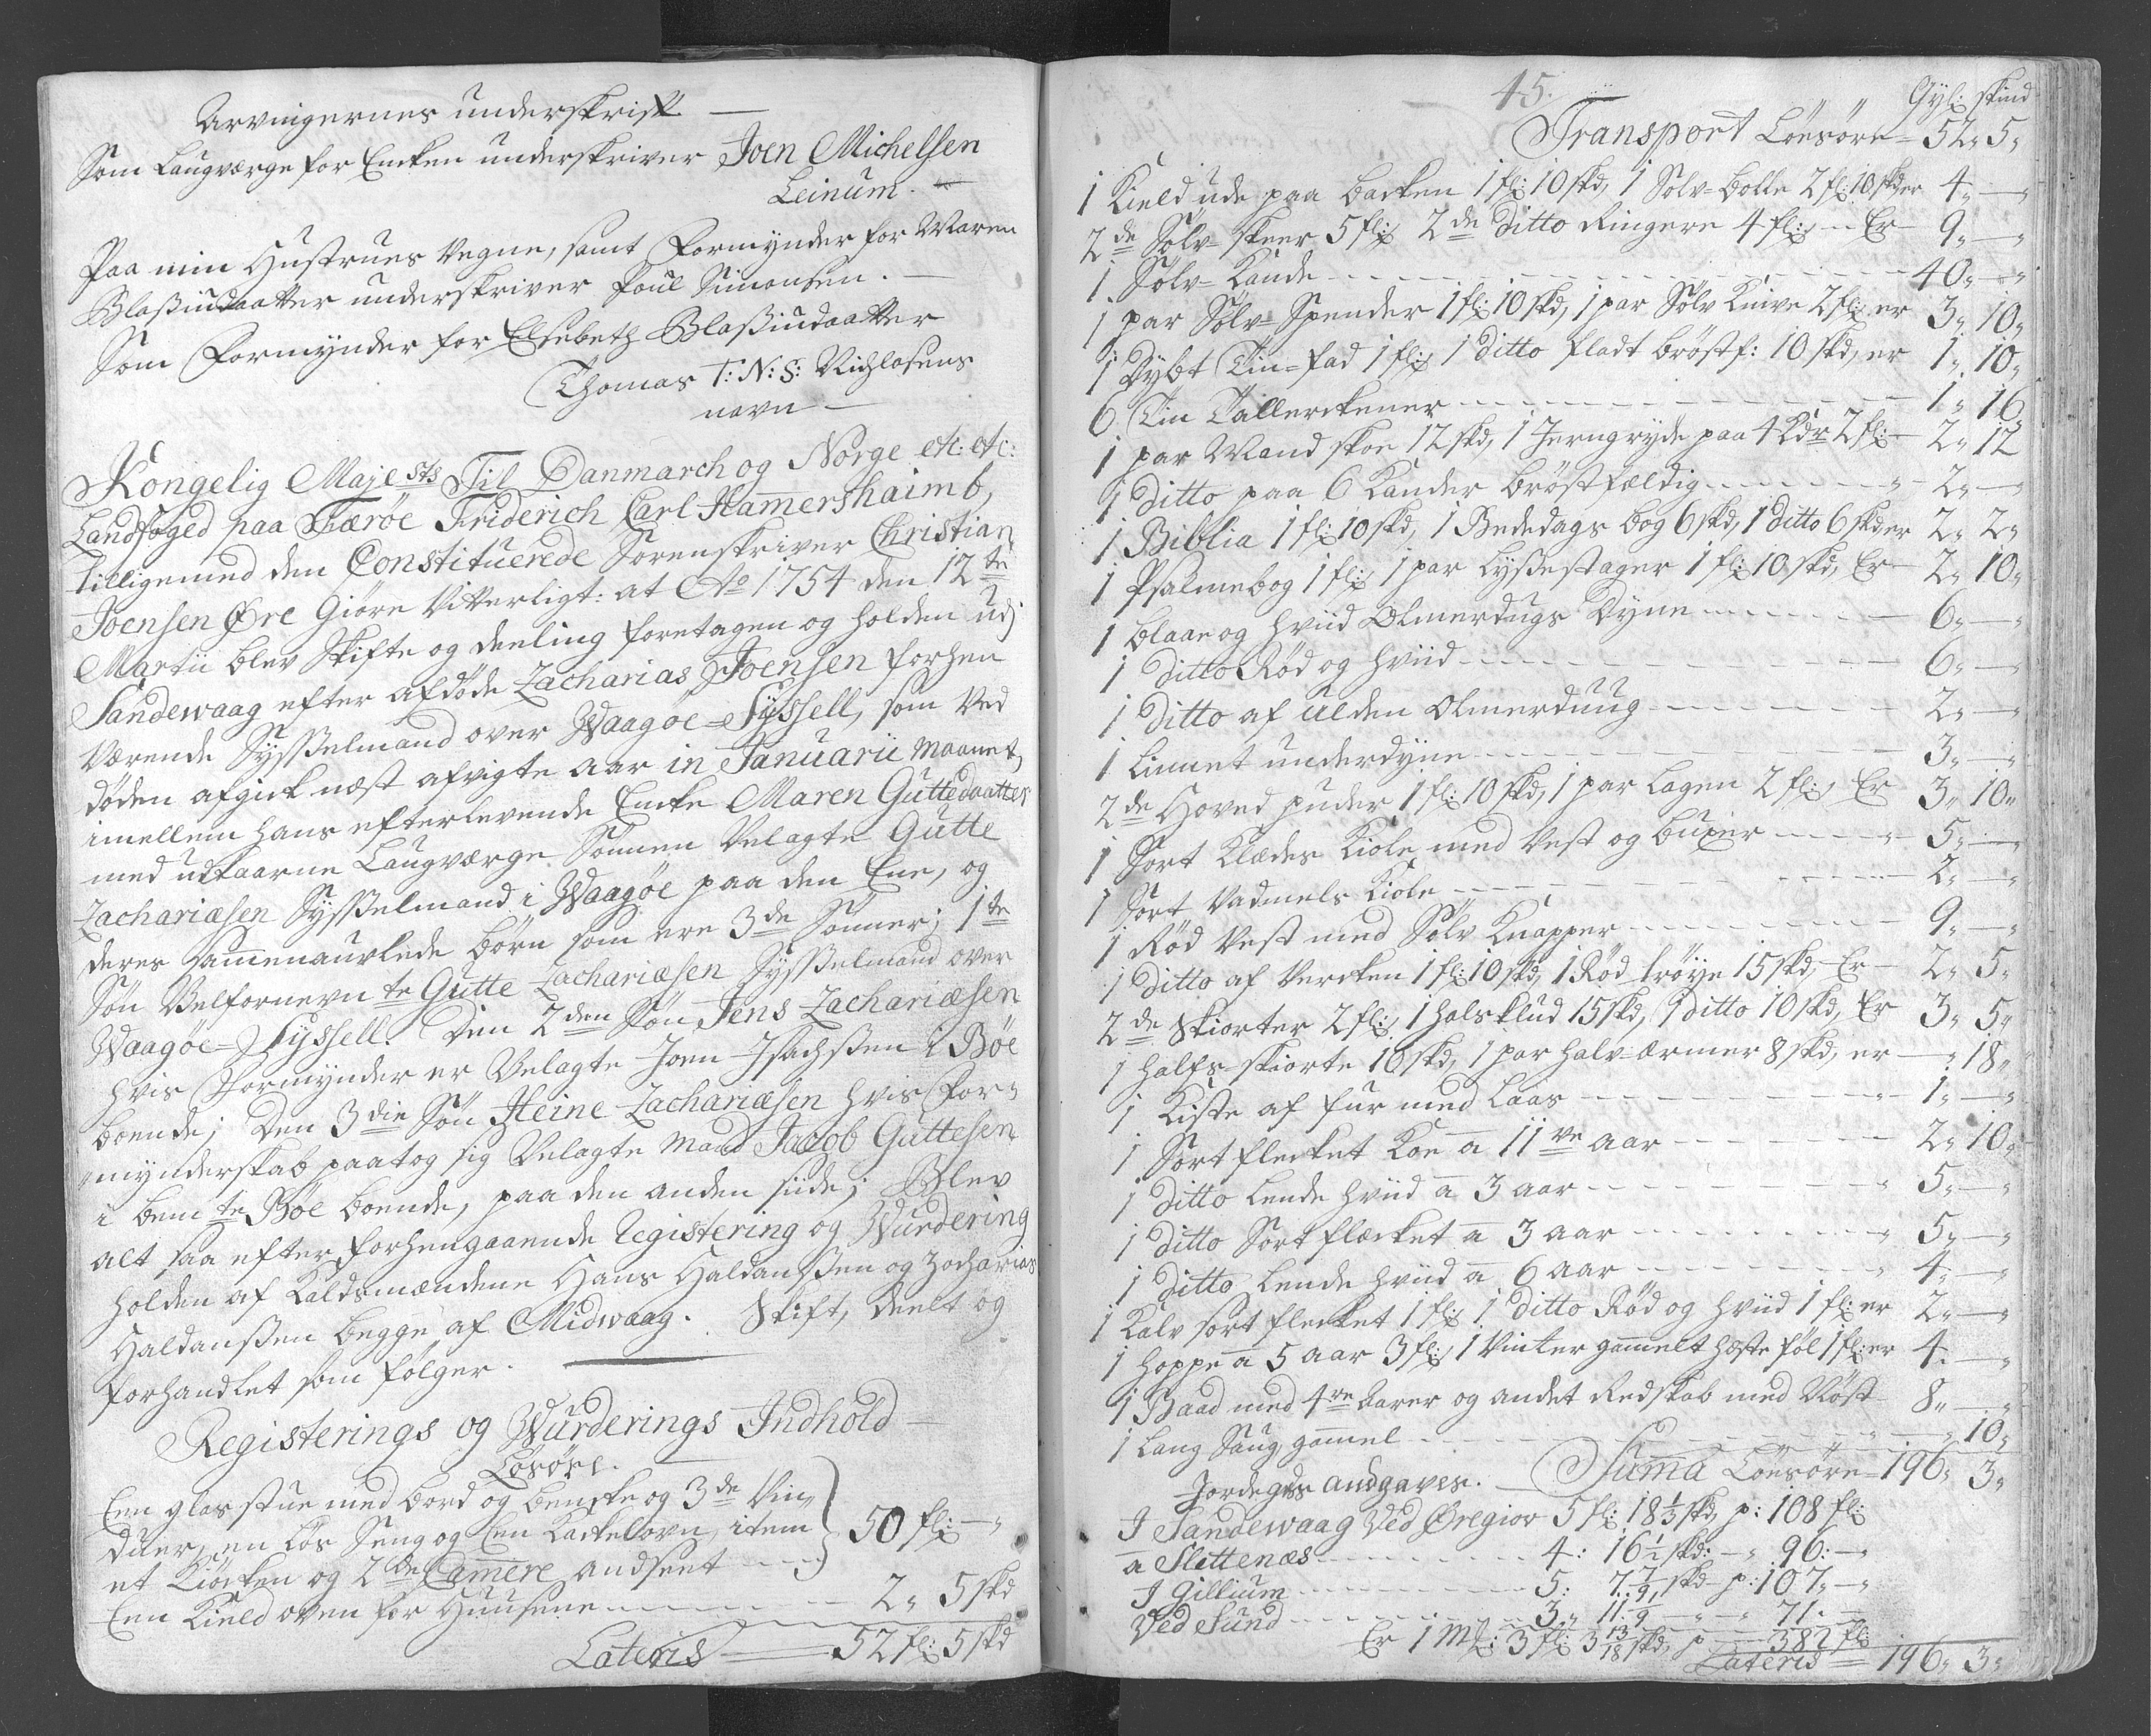 Arvingernes underskrift. —
Som Laugværge for Encken underskriver Joen Michelsen
Leinum. —
Paa min Hustrues Vegne, samt Formynder for Maren
Blasiidaatter underskriver Poul Simonsen. —
Som Formynder for Elsebeth Blasiidaatter
Thomas T: N: S: Nichlasens
navn —
Kongelig Majests Til Danmarch og Norge etc: etc:
Landfoged paa Færöe Friderich Carl Hamershaimb,
tilligemed den Constituerede Sorenskriver Christian
Joensen Øre Giöre Vitterligt: at Ao 1754 den 12te
Martii blev Skifte og deeling foretagen og holden udj
Sandewaag efter afdöde Zacharias Joensen forhen
Værende Sysselmand over Waagöe-Syssell, som Ved
döden afgick næst afvigte aar in Januarii maanet,
imellem hans efterlevende Encke Maren Guttedaatter
med udkaarne Laugværge Sönnen Velagte Gutte
Zachariæsen Sysselmand i Waagöe paa den Ene, og
deres sammenauvlede börn som ere 3de Sönner; 1te
Sön Velfornevnte Gutte Zachariæsen Sysselmand over
Waagöe-Syssell. Den 2den Sön Jens Zachariæsen
hvis Formynder er Velagte Joen Isachsen i Böe
boende; Den 3die Sön Heine Zachariæsen hvis For-
mynderskab paatog sig Velagte Mand Jacob Guttesen
i bemte Böe boende, paa den anden siide; Blev
alt saa efter forhengaaende Registering og Wurdering
holden af Kaldsmændene Hans Haldansen og Zacharias
Haldansen begge af Midwaag. Skift, deelt og
forhandlet som fölger.
Registerings og Wurderings Indhold —
Lösöre.
Een glas stue med bord og bencke og 3de Vin-
duer, en lös Seng og Een Kackelovn, item
et Kiöcken og 2de Camere andseet — 50 fl: —
Een Kield oven for Huusene — 2„ 5 skd
Lateris — 52 fl: 5 skd
45.
Gyl: skind
Transport Löesöre = 52„ 5„
1 Kield ude paa backen 1 fl: 10 skd, 1 Solv-bolle 2 fl: 10 skd er 4„ —
2de Sölv-skeer 5 fl:, 2de Ditto Ringere 4 fl: — Er 9„ —
1 Sölv-Kande — 40„ —
1 par Sölv-Spender 1 fl: 10 skd, 1 par Sölv Knive 2 fl: er 3„ 10„
1 Dybt Tin-fad 1 fl:, 1 ditto fladt bröstf: 10 skd, er 1„ 10„
6 Tin Tallerckener — 1„ 16
1 par Mand skoe 12 skd, 1 Jerngryde paa 4 Kdr 2 fl: — 2„ 12
1 ditto paa 6 Kander bröstfældig — 2„ —
1 Biblia 1 fl: 10 skd, 1 Bededags bog 6 skd, 1 ditto 6 skd er 2„ 2„
1 Psalmebog 1 fl:, 1 par Lysestager 1 fl: 10 skd, Er 2„ 10„
1 blaae og hviid Olmerdugs Dyne — 6„ —
1 ditto Röd og hviid — 6„ —
1 ditto af ulden Olmerduug — 2„ —
1 Linnet underdyne — 3„ —
2de Hoved puder 1 fl: 10 skd, 1 par Lagen 2 fl:, Er 3„ 10„
1 Sort Klædes Kiole med Vest og buxer — 5„ —
1 Sort Vadmels Kiole — 2„ —
1 Röd Vest med Sölv Knapper — 9„ —
1 ditto af Vercken 1 fl: 10 skd, 1 Röd tröye 15 skd, Er 2„ 5„
2de Skiorter 2 fl:, 1 halsklud 15 skd, 1 ditto 10 skd, Er 3„ 5„
1 halfs-skiorte 10 skd, 1 par halv-ærmer 8 skd, er — 18„
1 Kiste af fur med Laas — 1„ —
1 Sort flecket Koe a 11ve aar — 2„ 10„
1 ditto lende hviid a 3 aar — 5„ —
1 ditto Sort flecket a 3 aar — 5„ —
1 ditto lende hviid a 6 aar — 4„ —
1 Kalv sort flecket 1 fl:, 1 ditto Röd og hviid 1 fl: er 2„ —
1 hoppe a 5 aar 3 fl:, 1 Vinter gammelt heste föl 1 fl: er 4. —
1 Baad med 4re aarer og andet Redskab med Nöst 8„ —
1 lang Saug, gammel — 10„
Summa Löesöre = 196„ 3„
Jordegds andgaves.
I Sandewaag Ved Øregior 5 fl: 18 1/3 skd, p: 108 fl:
a Slettenæs — 4: 16 1/2 skd: — 96: —
I Gillium — 5: 7 7/9 skd — p: 107„ —
Ved Sund — 3„ 11 — 71. —
Er 1 M: 3 fl: 3 13/18 skd, p — 382 fl:
Lateris = 196„ 3„